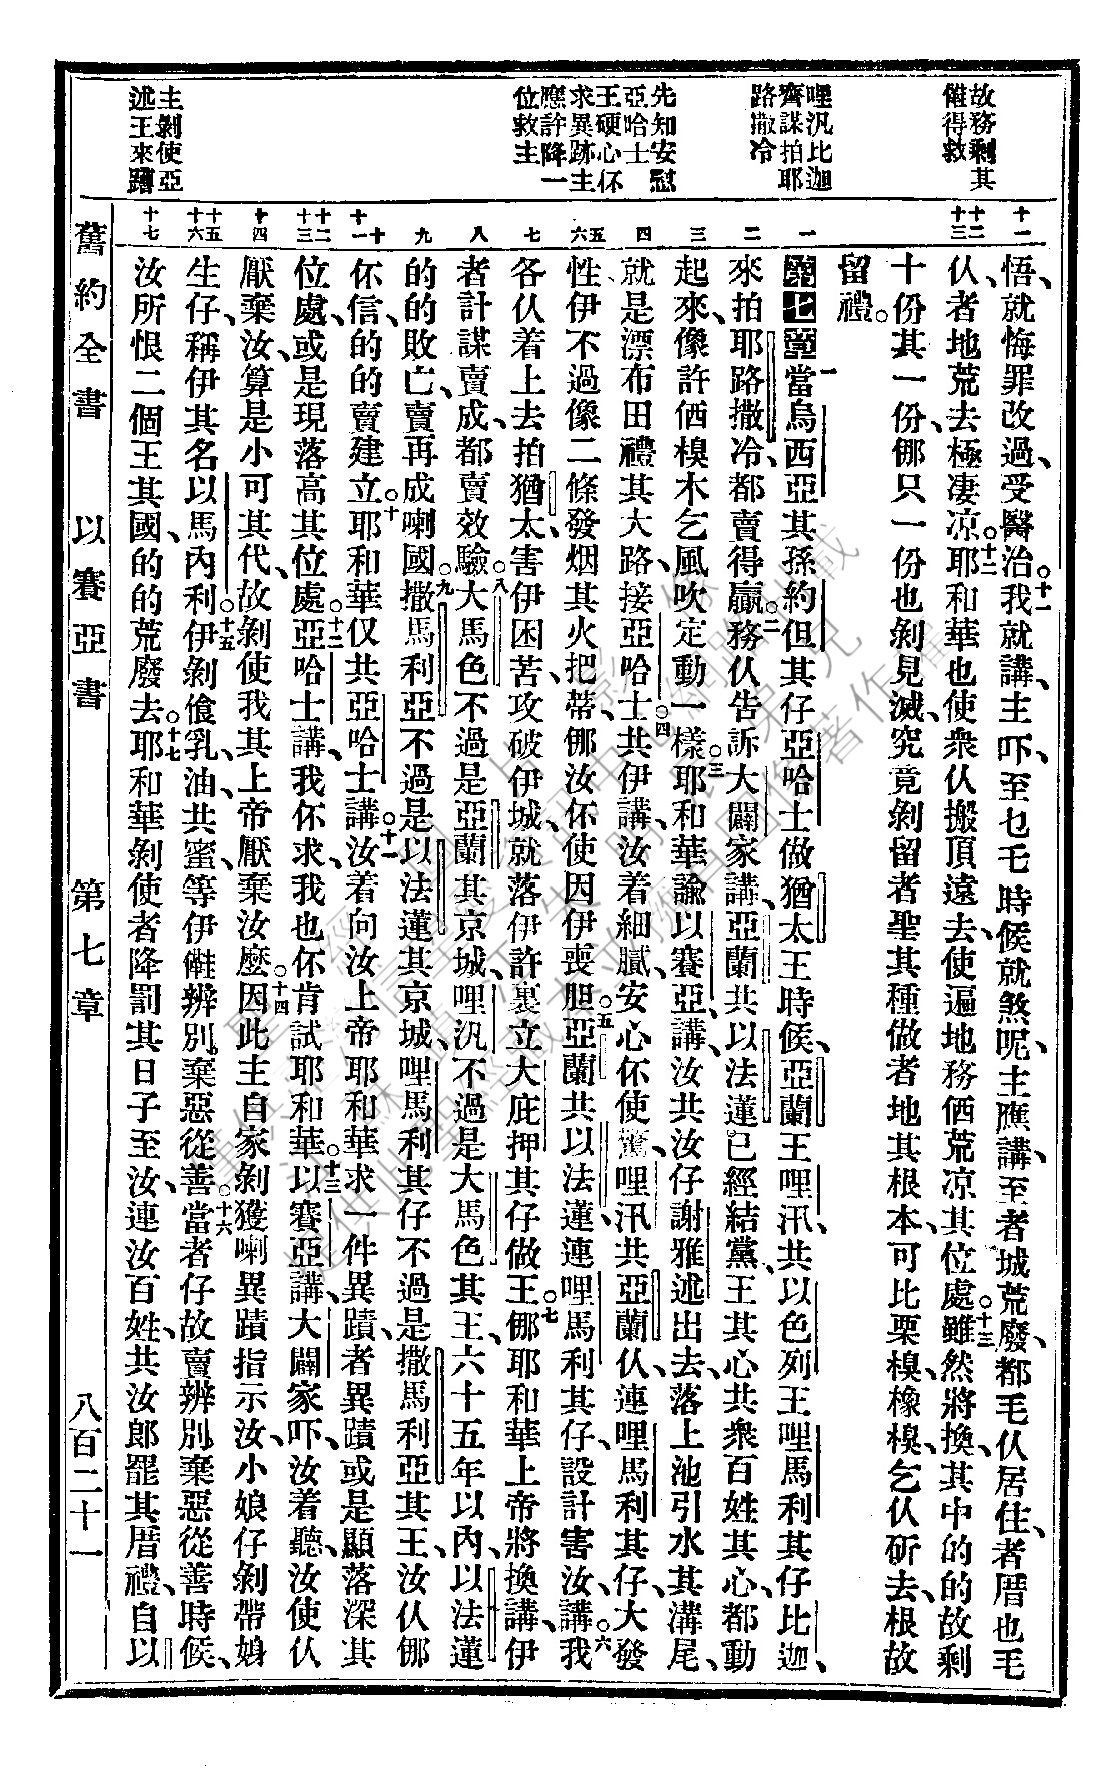 故務剩其
僅得救
哩汎比迦
齊謀拍耶
路撒冷
先知安慰
亞哈士
王硬心伓
求異跡主
應許降一
位救主
主剝使亞
述王來蹧
十一
十二
十三
一
二
三
四
五
六
七
八
九
十
十一
十二
十三
十四
十五
十六
十七
悟、就悔罪改過、受醫治。十一我就講、主吓、至乜乇時候就煞呢、主應講、至者城荒廢、都毛仈居住、者厝也毛
仈、者地荒去極凄凉。十二耶和華也使衆仈搬頂遠去、使遍地務価荒凉其位處。十三雖然將換、其中的的故剩
十份其一份、㑚只一份也剝見滅、究竟剝留者聖其種做者地其根本、可比栗槼、橡槼、乞仈斫去、根故
留禮。
第七章 一當烏西亞其孫、約但其仔、亞哈士做猶太王時候、亞蘭王哩汎、共以色列王哩馬利其仔比迦、
來拍耶路撒冷、都賣得贏。二務仈告訴大闢家講、亞蘭共以法蓮已經結黨、王其心共衆百姓其心、都動
起來、像許価槼木乞風吹定動一樣。三耶和華諭以賽亞講、汝共汝仔謝雅述出去、落上池引水其溝尾、
就是漂布田禮其大路、接亞哈士。四共伊講、汝着細膩、安心伓使驚、哩汎共亞蘭仈、連哩馬利其仔、大發
性、伊不過像二條發烟其火把蒂、㑚汝伓使因伊喪胆。五亞蘭共以法蓮連哩馬利其仔、設計害汝、講。六我
各仈着上去拍猶太、害伊困苦、攻破伊城、就落伊許裏立大庇押其仔做王。七㑚耶和華上帝將換講、伊
者計謀賣成、都賣效驗。八大馬色不過是亞蘭其京城、哩汎不過是大馬色其王、六十五年以內、以法蓮
的的敗亡、賣再成喇國。九撒馬利亞不過是以法蓮其京城、哩馬利其仔不過是撒馬利亞其王、汝仈㑚
伓信、的的賣建立。十耶和華仅共亞哈士講。十一汝着向汝上帝耶和華求一件異蹟、者異蹟或是顯落深其
位處、或是現落高其位處。十二亞哈士講、我伓求、我也伓肯試耶和華。十三以賽亞講、大闢家吓、汝着聽、汝使仈
厭棄汝、算是小可其代、故剝使我其上帝厭棄汝麼。十四因此主自家剝獲喇異蹟指示汝、小娘仔剝帶娠
生仔、稱伊其名以馬內利。十五伊剝飡乳油、共蜜、等伊㑸辨別、棄惡從善。十六當者仔故賣辨別、棄惡從善時候、
汝所恨二個王其國、的的荒廢去。十七耶和華剝使者降罰其日子至汝、連汝百姓、共汝郎罷其厝禮、自以
舊約全書 以賽亞書 第七章 八百二十一